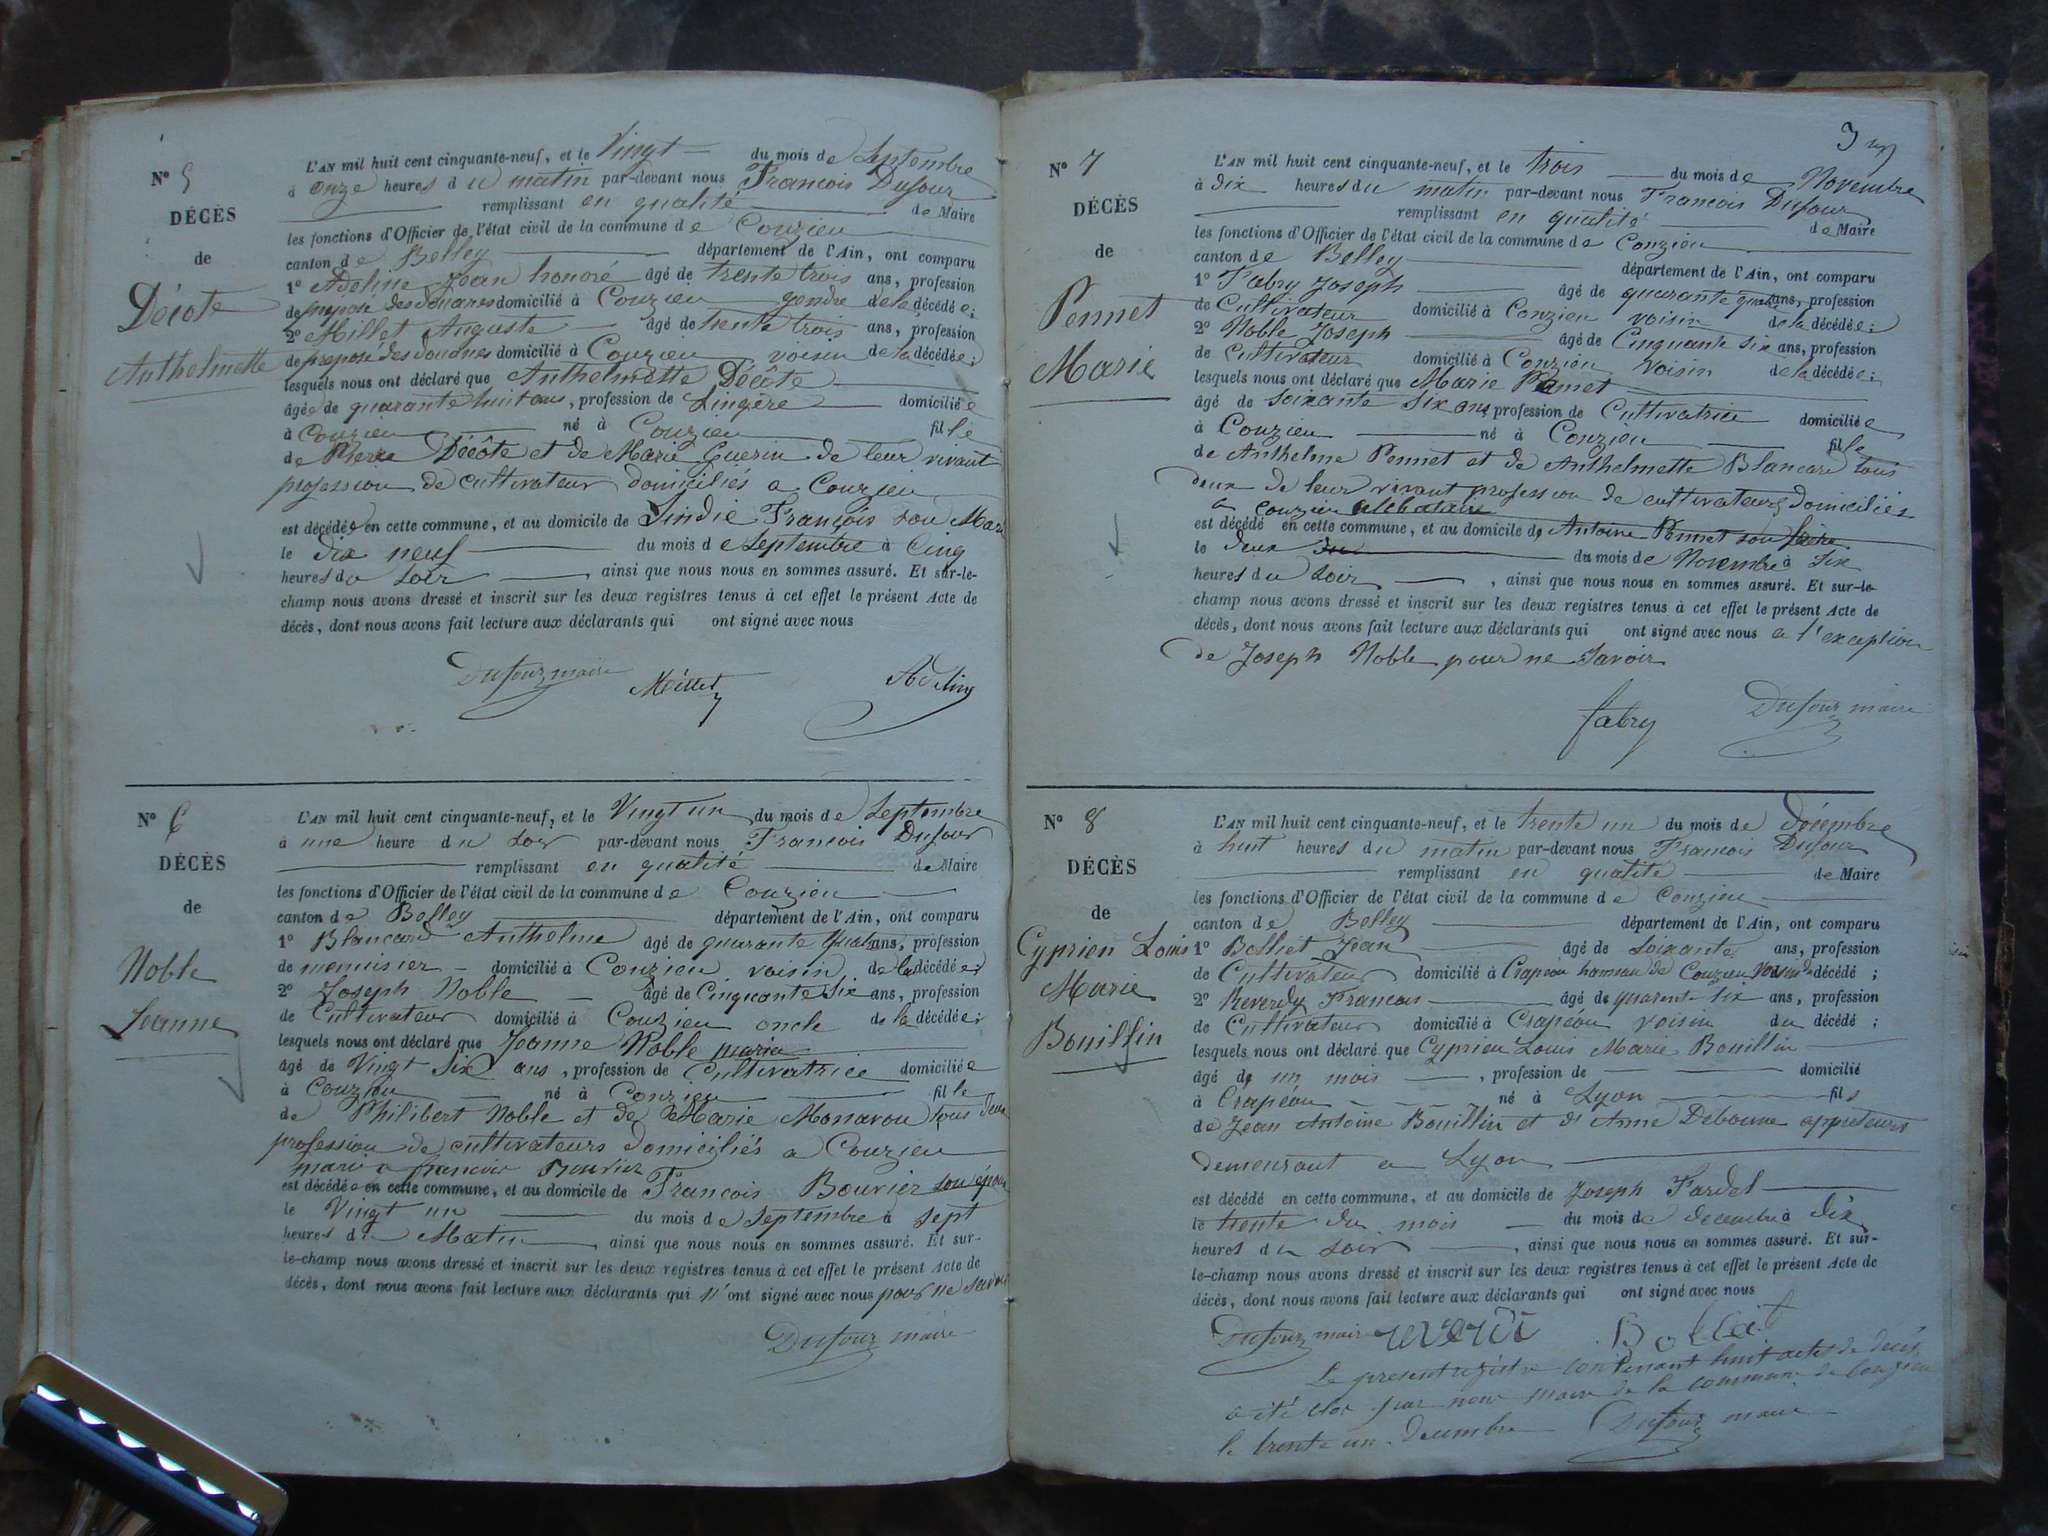 N° 5
DÉCÈS
de
Décote
Anthelmette
L'AN mil huit cent cinquante-neuf, et le Vingt du mois de Septembre
à onze heures du matin par-devant nous François Dufour
remplissant en qualité de Maire
les fonctions d'Officier de l'état civil de la commune de Couzieu
canton de Belley département de l'Ain, ont comparu
1° Adeline Jean honoré âgé de trente trois ans, profession
de préposé des douanes domicilié à Couzieu gendre de la décédée;
2° Millet Auguste âgé de trente trois ans, profession
de préposé des douanes domicilié à Couzieu voisin de la décédée;
lesquels nous ont déclaré que Anthelmette Décôte
âgée de quarante huit ans, profession de Lingère domiciliée
à Couzieu né à Couzieu fille
de Pierre Décôte et de Marie Guerin de leur vivant
profession de cultivateur domiciliés a Couzieu
est décédée en cette commune, et au domicile de François son Mari
le dix neuf du mois de Septembre à Cinq
heures du soir ainsi que nous nous en sommes assuré. Et sur-le-
champ nous avons dressé et inscrit sur les deux registres tenus à cet effet le présent Acte de
décès, dont nous avons fait lecture aux déclarants qui ont signé avec nous
Dufour maire Millet Adeline
N° 6
DÉCÈS
de
Noble
Jeanne
L'AN mil huit cent cinquante-neuf, et le Vingt un du mois de Septembre
à une heure du soir par-devant nous François Dufour
remplissant en qualité de Maire
les fonctions d'Officier de l'état civil de la commune de Couzieu
canton de Belley département de l'Ain, ont comparu
1° Blancard Anthelme âgé de quarante quatre ans, profession
de menuisier domicilié à Couzieu voisin de la décédée
2° Joseph Noble âgé de Cinquante six ans, profession
de Cultivateur domicilié à Couzieu oncle de la décédée;
lesquels nous ont déclaré que Jeanne Noble
âgé de Vingt Six ans, profession de Cultivatrice domiciliée
à Couzieu né à Couzieu fille
de Philibert Noble et de Marie Monavou tous deux
profession de cultivateurs domiciliés a Couzieu
marié a françois Bouvier
est décédée en cette commune, et au domicile de François Bouvier son époux
le Vingt un du mois de Septembre à sept
heures du Matin ainsi que nous nous en sommes assuré. Et sur-
le-champ nous avons dressé et inscrit sur les deux registres tenus à cet effet le présent Acte de
décès, dont nous avons fait lecture aux déclarants qui n'ont signé avec nous pour ne savoir
Dufour maire
3
N° 7
DÉCÈS
de
Pennet
Marie
L'AN mil huit cent cinquante-neuf, et le trois du mois de Novembre
à dix heures du matin par-devant nous François Dufour
remplissant en qualité de Maire
les fonctions d'Officier de l'état civil de la commune de Couzieu
canton de Belley département de l'Ain, ont comparu
1° Fabry Joseph âgé de quarante quatre ans, profession
de Cultivateur domicilié à Couzieu voisin de la décédée;
2° Noble Joseph âgé de Cinquante six ans, profession
de Cultivateur domicilié à Couzieu voisin de la décédée;
lesquels nous ont déclaré que Marie Pennet
âgé de soixante six ans, profession de Cultivatrice domiciliée
à Couzieu né à Couzieu fille
de Anthelme Pennet et de Anthelmette Blancard tous
deux de leur vivant profession de cultivateurs domiciliés
a Couzieu célibataire
est décédé en cette commune, et au domicile de Antoine Pennet son frère
le deux du mois de Novembre à Six
heures du soir, ainsi que nous nous en sommes assuré. Et sur-le-
champ nous avons dressé et inscrit sur les deux registres tenus à cet effet le présent Acte de
décès, dont nous avons fait lecture aux déclarants qui ont signé avec nous a l'exception
de Joseph Noble pour ne savoir
fabry Dufour maire
N° 8
DÉCÈS
de
Cyprien Louis
Marie
Bouillin
L'AN mil huit cent cinquante-neuf, et le trente un du mois de décembre
à huit heures du matin par-devant nous François Dufour
remplissant en qualité de Maire
les fonctions d'Officier de l'état civil de la commune de Couzieu
canton de Belley département de l'Ain, ont comparu
1° Bolliet Jean âgé de soixante ans, profession
de Cultivateur domicilié à Crapéou hameau de Couzieu voisin du décédé;
2° Reverdy François âgé de quarente six ans, profession
de Cultivateur domicilié à Crapéou voisin du décédé;
lesquels nous ont déclaré que Cyprien Louis Marie Bouillin
âgé de un mois, profession de domicilié
à Crapéou né à Lyon fils
de Jean Antoine Bouillin et d' Anne Debonne appreteurs
demeurant a Lyon
est décédé en cette commune, et au domicile de Joseph Fardel
le trente du mois du mois de decembre à dix
heures du soir, ainsi que nous nous en sommes assuré. Et sur-
le-champ nous avons dressé et inscrit sur les deux registres tenus à cet effet le présent Acte de
décès, dont nous avons fait lecture aux déclarants qui ont signé avec nous
Dufour maire reverdi Bolliet
Le present registre contenant huit actes de décès
a été clos par nous maire de la commune de Couzieu
le trente un decembre Dufour maire